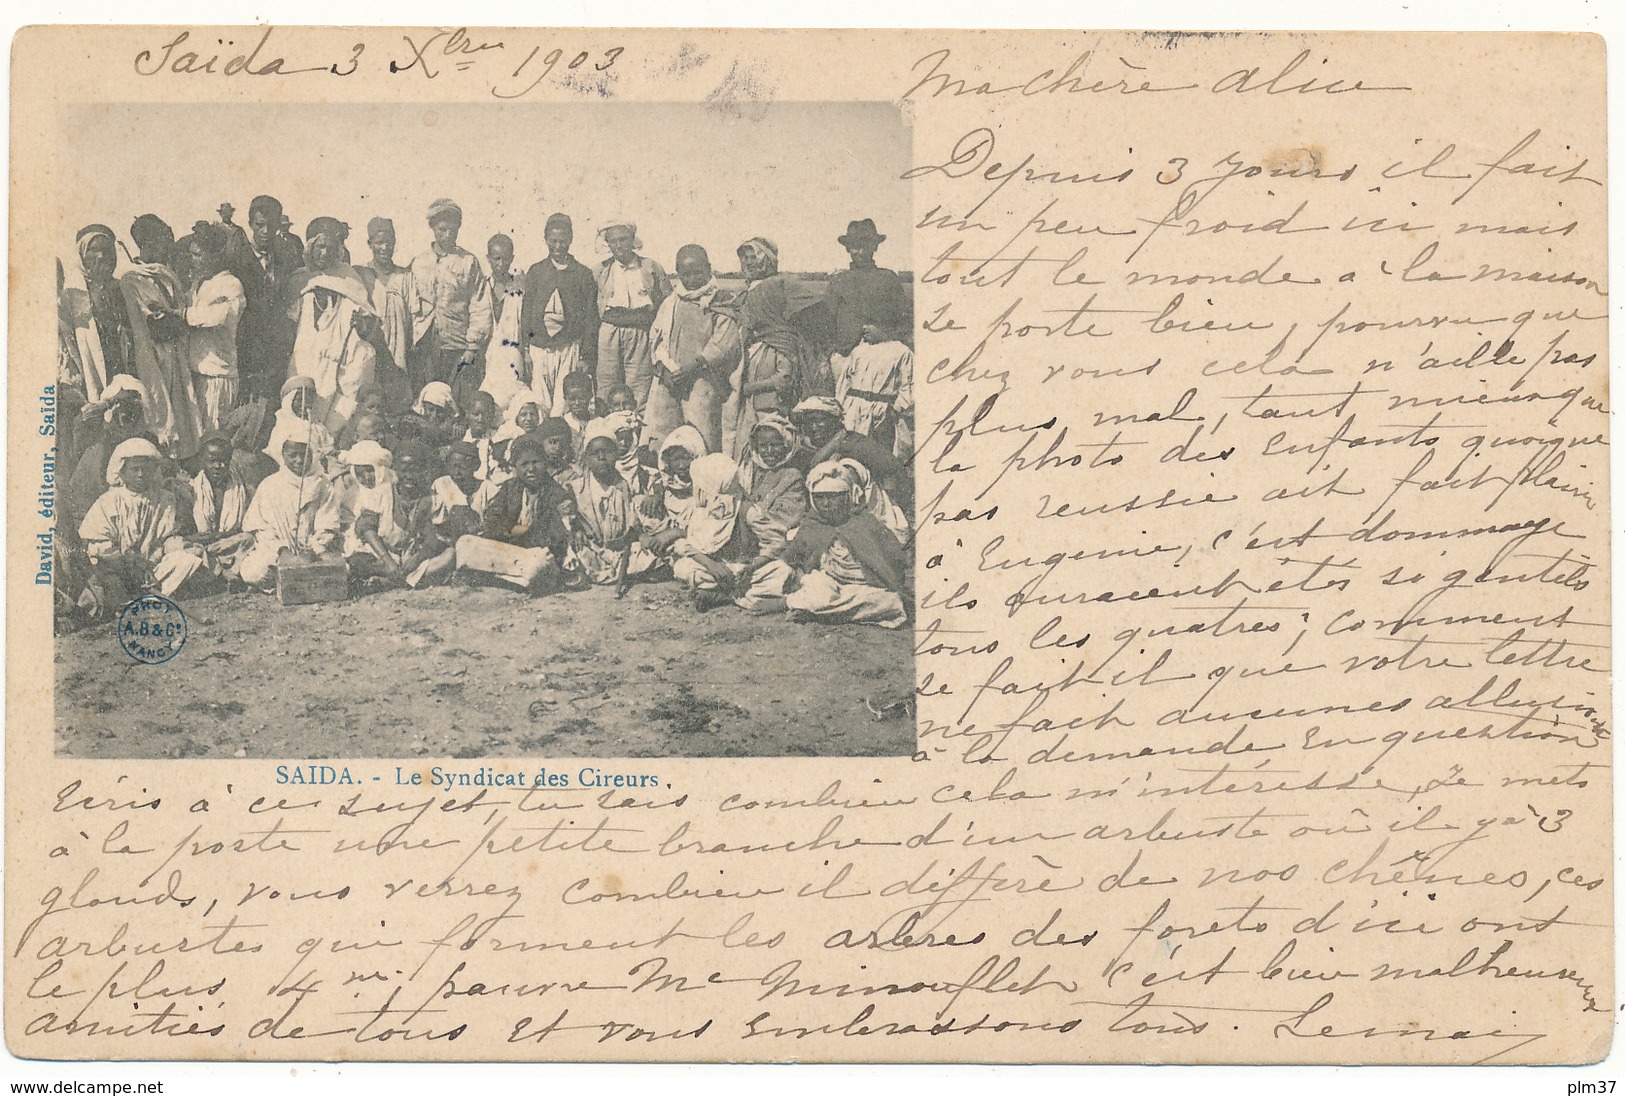 Saïda 3 Xbre 1903
Ma chère Alice
Depuis 3 jours il fait
un peu froid ici mais
tout le monde à la maison
se porte bien, pourvu que
chez vous cela n'aille pas
plus mal, tant mieux que
la photo des enfants quoique
pas reussie ait fait plaisir
à Eugenie, c'est dommage
ils auraient étés si gentils
tous les quatres; comment
se fait il que votre lettre
ne fait aucunes allusions
à la demande en question
écris à ce sujet, tu sais combien cela m'intéresse, Je mets
à la poste une petite branche d'un arbuste où il y à 3
glands, vous verrez combien il différè de nos chênes, ces
arbustes qui forment les arbres des forets d'ici ont
le plus 4 m. pauvre Me Minouflet c'est bien malheureux
amitiés de tous et vous embrassons tous. Lemai
David, éditeur, Saïda
PHOT
A.B & Cie
NANCY
SAIDA. - Le Syndicat des Cireurs
www.delcampe.net
plm37